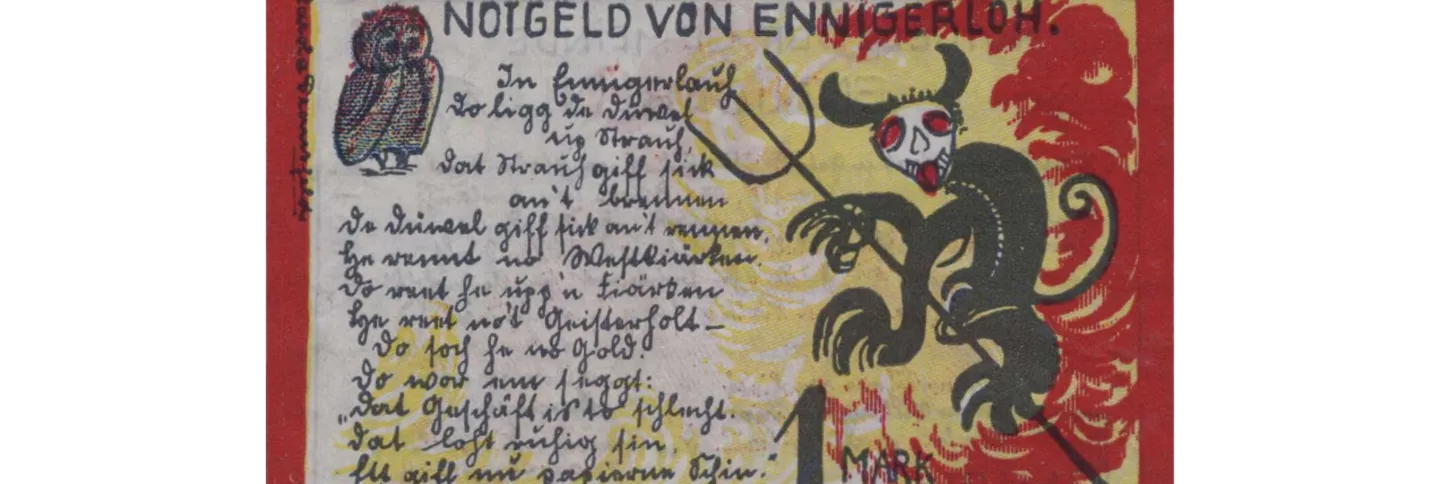 NOTGELD VON ENNIGERLOH.
In Ennigerlauh
Do ligg de Düwel
up Strauh,
Dat Strauh giff sick
an't brennen
De Düwel giff sick an't rennen,
He rennt no Westkiärken.
Do reet he upp'n Fiärken
He reet no't Geisterholt—
Do soch he no Gold.
Do wor em seggt:
„Dat Geschäft is to schlecht.
Dat loht ruhig sin,
Ett giff nu papierne Schin."
1 MARK